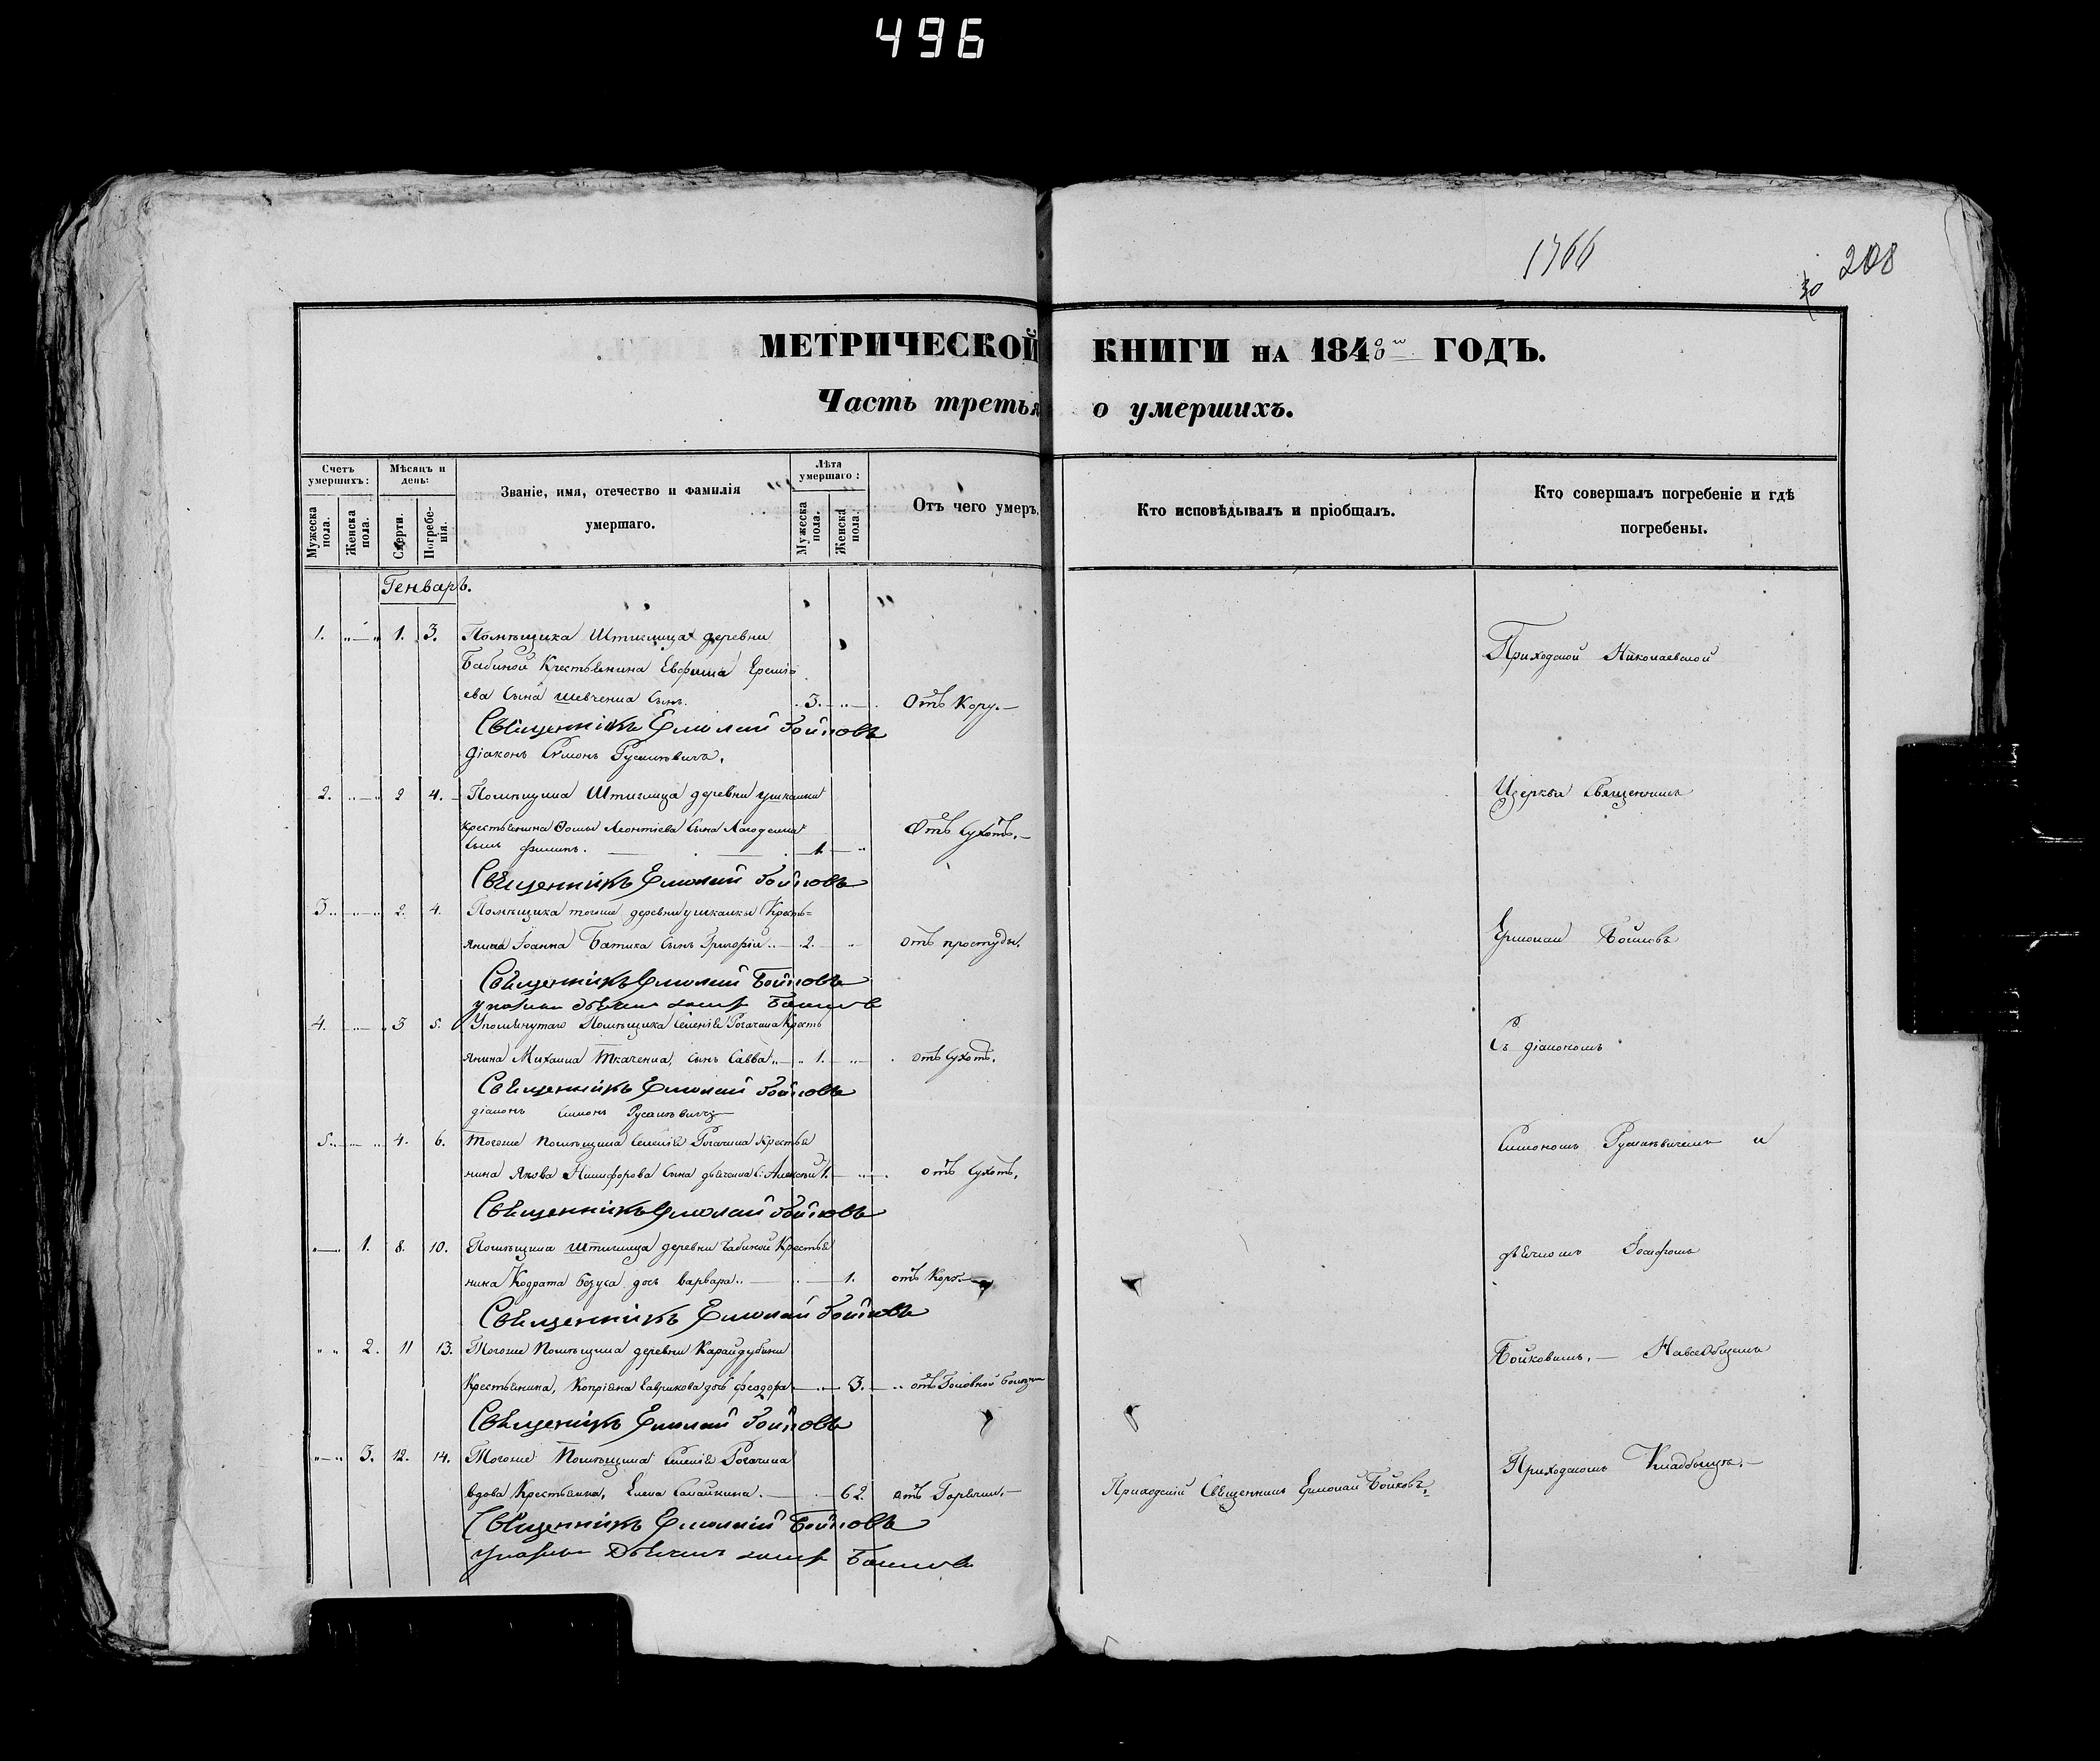 496
1766
208
30
МЕТРИЧЕСКОЙ КНИГИ НА 184 ГОДЪ.
Часть третья о умершихъ.
Счетъ умершихъ:
Мѣсяцъ и день:
Званіе, имя, отечество и фамилія умершаго.
Лѣта умершаго:
Отъ чего умеръ.
Кто исповѣдывалъ и пріобщалъ.
Кто совершалъ погребеніе и гдѣ погребены.
Мужеска пола.
Женска пола.
Смерти.
Погребенія.
Мужеска пола.
Женска пола.
Генварь.
1. 1. 3. Помѣщика Штиглица деревни
Бабиной Крестьянина Евфима
ева Сына Шевченка Сынъ. 3. Отъ Кору.
Священникъ Ермолай Бойковъ
Діаконъ Симонъ Русаневичъ.
2. 2 4. Помѣщика Штиглица деревни Ушкалки
крестьянина Фомы Леонтіева Сына
Сынъ Филипъ. 1 Отъ Сухотъ.
Священникъ Ермолай Бойковъ
3. 2. 4. Помѣщика тогоже деревни Ушкалки Кресть=
янина Іоанна Батика Сынъ Григорій 2. отъ простуды.
Священникъ Ермолай Бойковъ
4. 3 5. Упомянутаго Помѣщика Селенія Рогачика Кресть
янина Михаила Ткаченка, Сынъ Савва 1. отъ Сухотъ.
Священникъ Ермолай Бойковъ
діаконъ Симонъ Русаневичъ
5. 4. 6. Тогоже Помѣщика Селенія Рогачика Крестья
нина Якова Никифорова Сына дьяченка С: Алексѣй 1. отъ Сухотъ.
Священникъ Ермолай Бойковъ
1. 8. 10. Помѣщика Штиглица деревни Бабиной Крестья
нина Кодрата дочь Варвара 1. отъ Кору.
Священникъ Ермолай Бойковъ
2. 11 13. Тогоже Помѣщика деревни Карайдубини
Крестьянина, Копріяна Гаврикова дочь Феодора 3. отъ Головной болезни
Священникъ Ермолай Бойковъ
3. 12. 14. Тогоже Помѣщика Селенія Рогачика
вдова Крестьянка, Елена 62. отъ Горячки.
Священникъ Ермолай Бойковъ
Приходскій Священникъ Ермолай Бойковъ.
Приходской Николаевской
Церкви Священникъ
Ермолай Бойковъ
Съ діакономъ
Симономъ Русаневичемъ и
дьячкомъ Іосифомъ
Бойковымъ. На всеобщемъ
Приходскомъ Кладбищѣ.